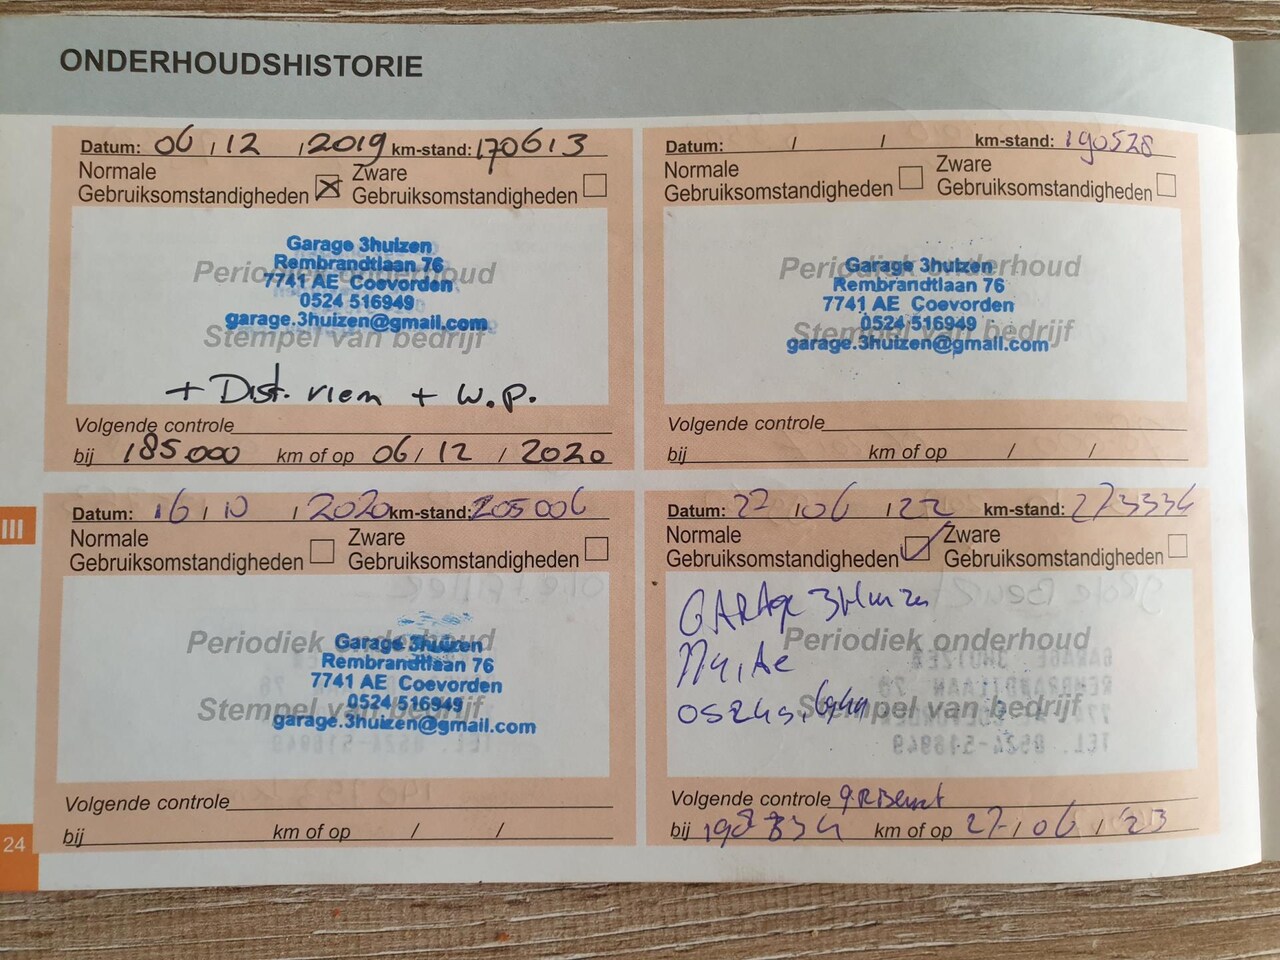 ONDERHOUDSHISTORIE
Datum: 06 / 12 / 2019 km-stand: 170613
Normale
Gebruiksomstandigheden
Zware
Gebruiksomstandigheden
Periodiek onderhoud
Stempel van bedrijf
Garage 3huizen
Rembrandtlaan 76
7741 AE Coevorden
0524 516949
garage.3huizen@gmail.com
+ Dist. riem + w.p.
Volgende controle
bij 185000 km of op 06 / 12 / 2020
Datum: / / km-stand: 190528
Normale
Gebruiksomstandigheden
Zware
Gebruiksomstandigheden
Periodiek onderhoud
Stempel van bedrijf
Garage 3huizen
Rembrandtlaan 76
7741 AE Coevorden
0524 516949
garage.3huizen@gmail.com
Volgende controle
bij km of op / /
Datum: 16 / 10 / 2020 km-stand: 205006
Normale
Gebruiksomstandigheden
Zware
Gebruiksomstandigheden
Periodiek onderhoud
Stempel van bedrijf
Garage 3huizen
Rembrandtlaan 76
7741 AE Coevorden
0524 516949
garage.3huizen@gmail.com
Volgende controle
bij km of op / /
Datum: 27 / 06 / 22 km-stand: 273334
Normale
Gebruiksomstandigheden
Zware
Gebruiksomstandigheden
Periodiek onderhoud
Stempel van bedrijf
GARAge 3Huizen
Volgende controle gr Beurt
bij km of op 27 / 06 / 23
III
24